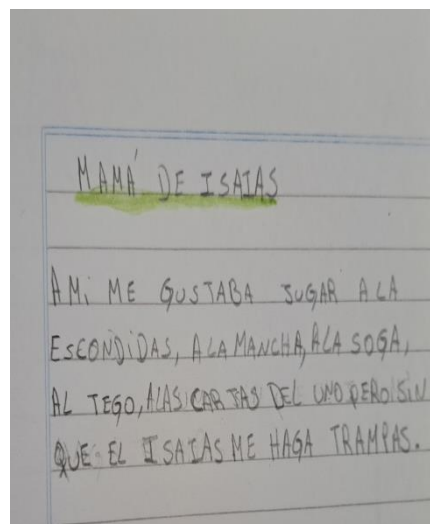 MAMÁ DE ISAIAS
A Mi ME GUSTABA JUGAR A LA
ESCONDIDAS, A LA MANCHA, A LA SOGA,
AL TEGO, A LAS CARTAS DEL UNO PERO SIN
QUE EL ISAIAS ME HAGA TRAMPAS.